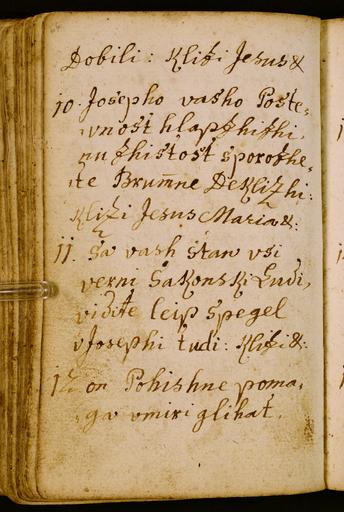 Dobili: Kliʒi Jesus &
10. Josepho vasho Poste=
wnost hlapzhizhi,
nu zhistost sporozhe=
ite Brumne DeKlizhi:
Kliʒi Jesus Maria &:
11. Sa vash stan vsi
verni Sakonski Ludi,
vidite leip spegel
vJosephi tudi: Kliʒi &:
12. on Pohishne poma,
ga vmiri glihat,